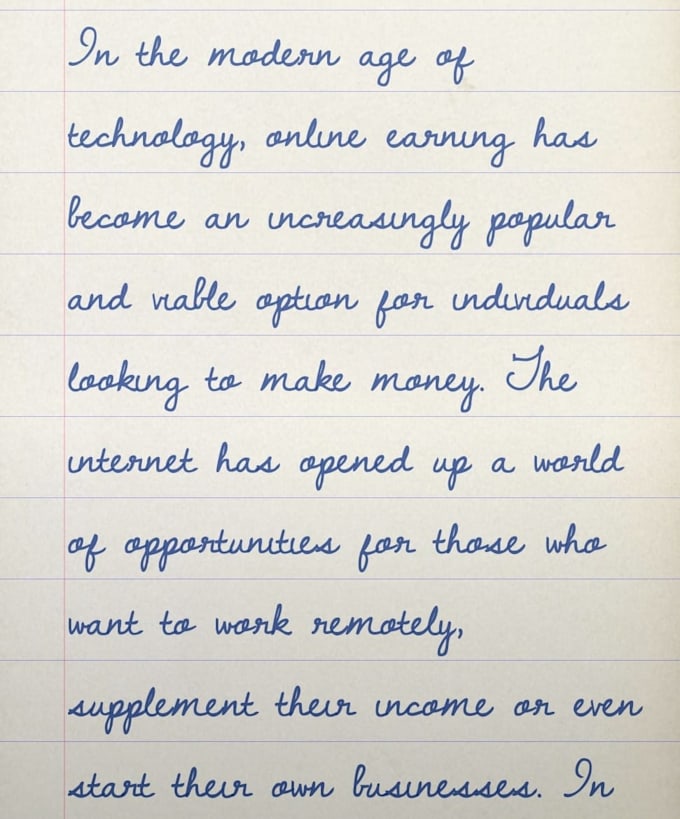 In the modern age of
technology, online earning has
become an increasingly popular
and viable option for individuals
looking to make money. The
internet has opened up a world
of opportunities for those who
want to work remotely,
supplement their income or even
start their own businesses. In